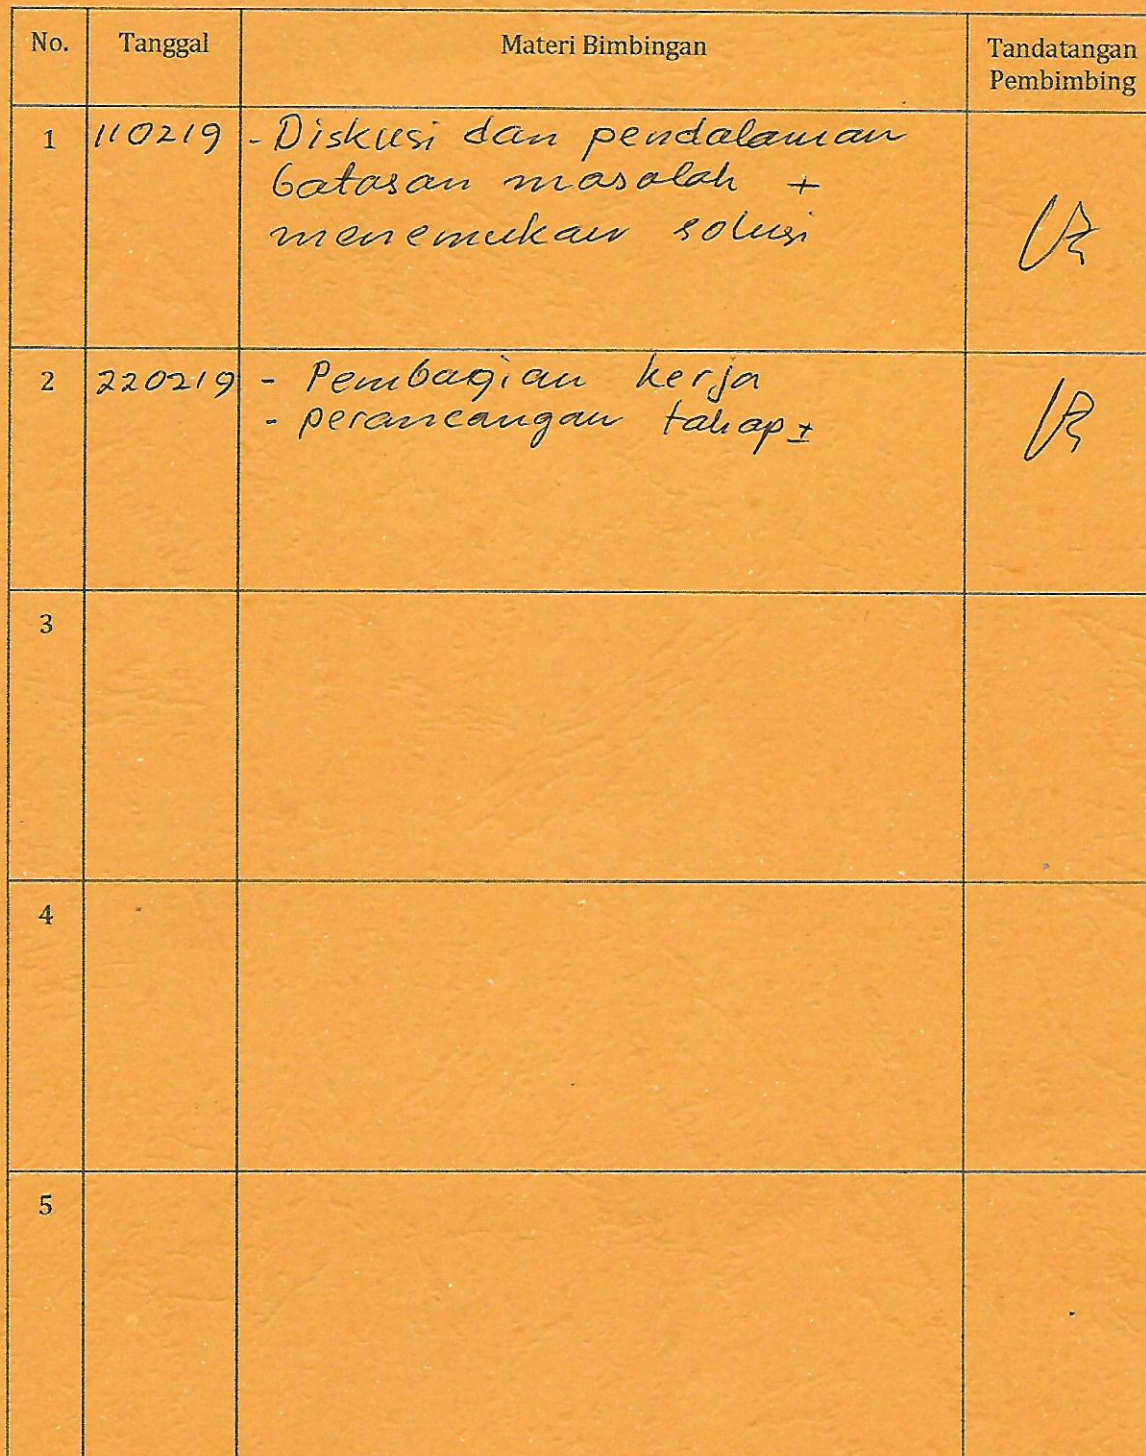 No. Tanggal Materi Bimbingan Tandatangan
Pembimbing
1 110219 - Diskusi dan pendalaman
batasan masalah +
menemukan solusi
2 220219 - Pembagian kerja
- perancangan tahap ±
3
4
5